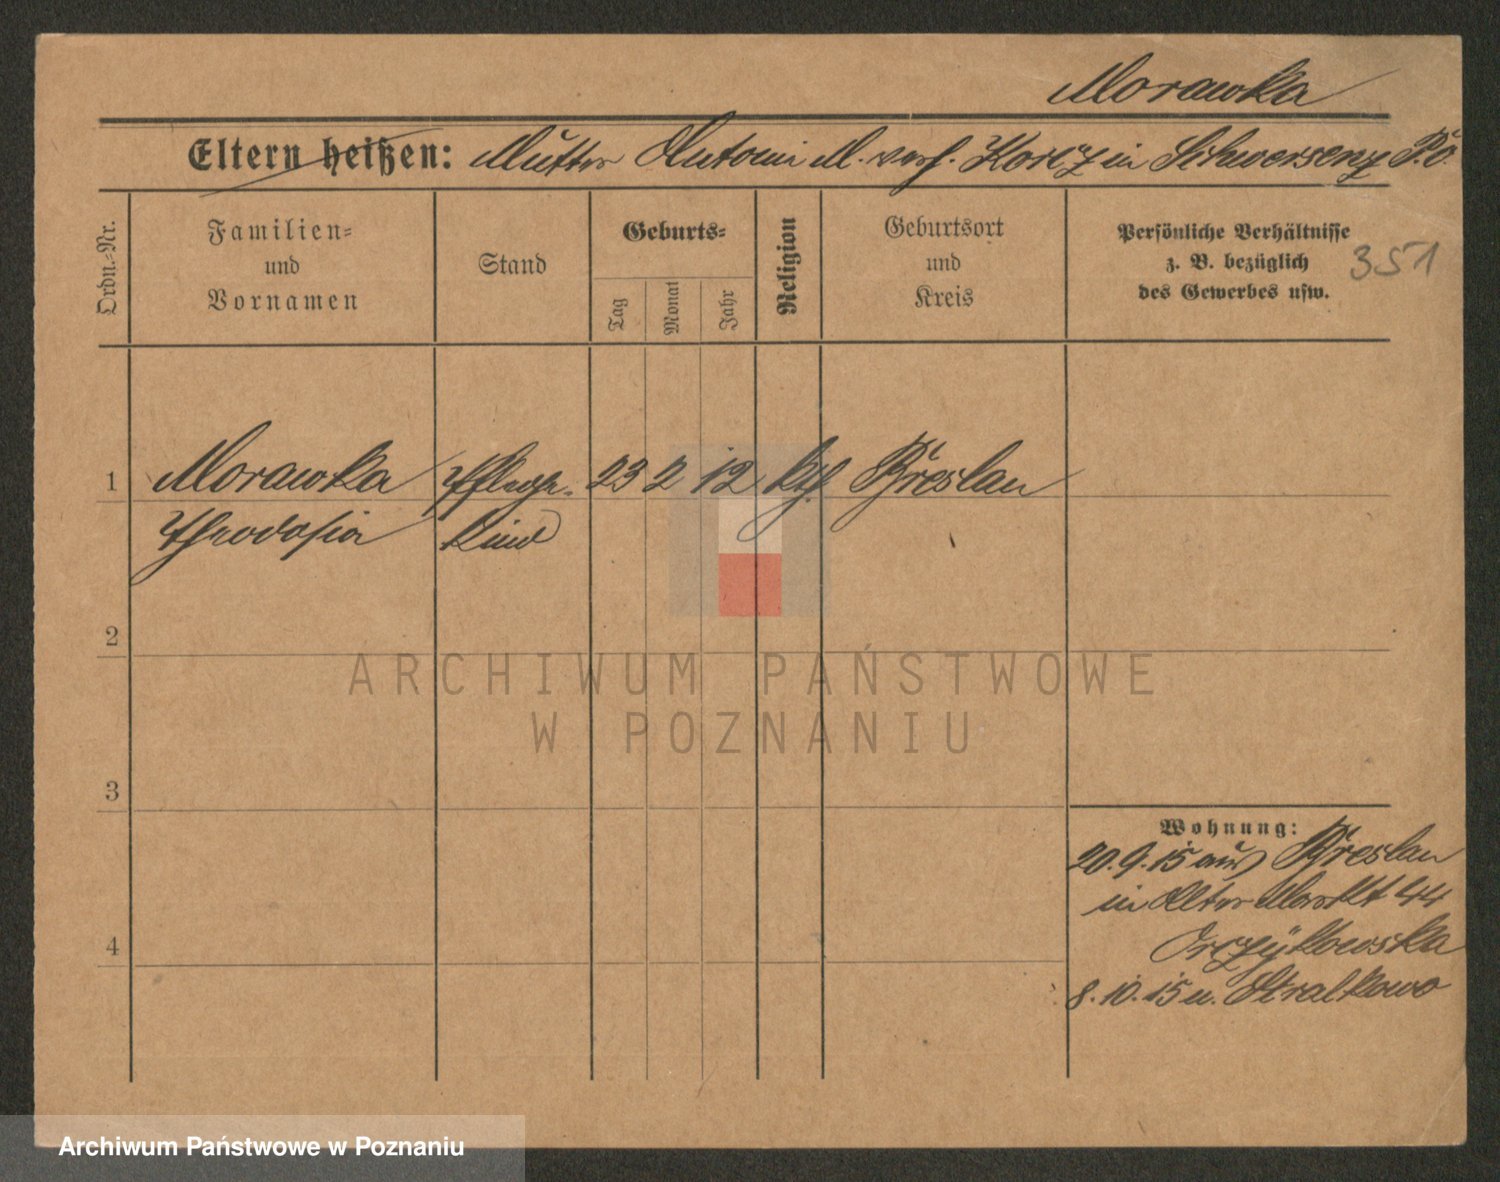 Morawka
Eltern heißen: Mutter Antoni M. verh. Korcz in Schwersenz P.O.
Ordn.-Nr.
Familien-
und
Vornamen
Stand
Geburts-
Tag
Monat
Jahr
Religion
Geburtsort
und
Kreis
Persönliche Verhältnisse
z. B. bezüglich
des Gewerbes usw.
351
1 Morawka Pflege- 23 2 12 kth. Breslau
Theodosia kind
2
3
4
Wohnung:
20.9.15 aus Breslau
in Alter Markt 44
Orczykowska
8.10.15 n. Stralkowo
ARCHIWUM PAŃSTWOWE
W POZNANIU
Archiwum Państwowe w Poznaniu